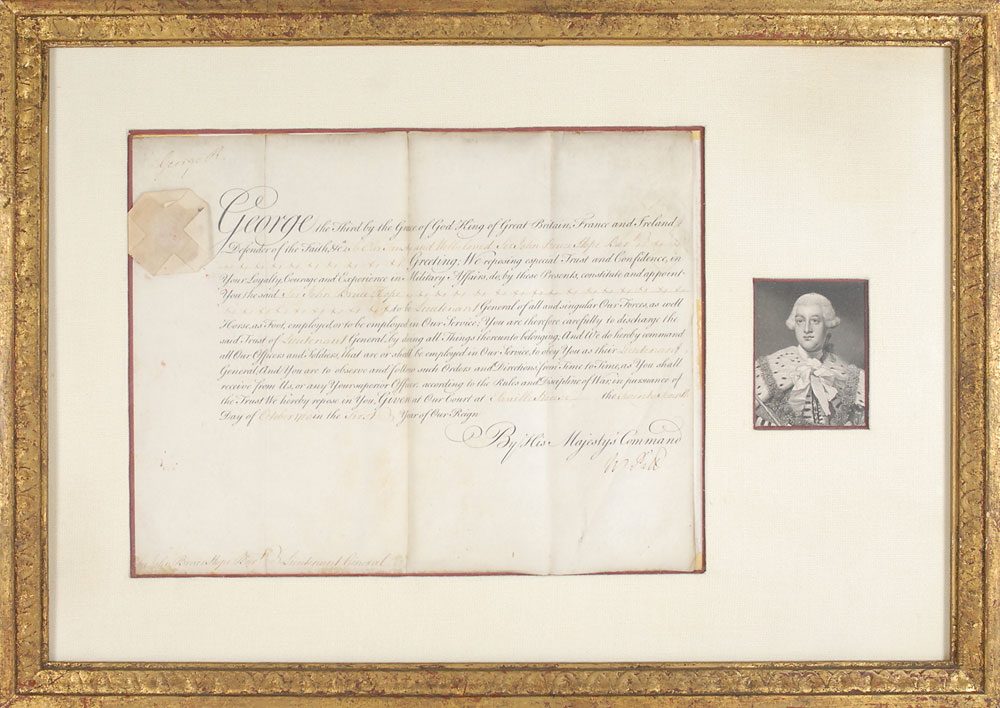 George R
George the Third by the Grace of God King of Great Britain, France and Ireland
Defender of the Faith, &c. To Our and Wellbeloved Sir John Bruce Hope Bart
Greeting: We reposing especial Trust and Confidence, in
Your Loyalty, Courage and Experience in Military Affairs, do, by these Presents, constitute and appoint
You the said Sir John Bruce Hope
to be Lieutenant General of all and singular Our Forces, as well
Horse, as Foot, employed, or to be employed in Our Service; You are therefore carefully to discharge the
said Trust of Lieutenant General, by doing all Things thereunto belonging, And We do hereby command
all Our Officers and Soldiers, that are or shall be employed in Our Service, to obey You as their Lieutenant
General. And You are to observe and follow such Orders and Directions, from Time to Time, as You shall
receive from Us, or any Your superior Officer, according to the Rules and Discipline of War, in pursuance of
the Trust We hereby repose in You. Given at Our Court at the
Day of October 1760 in the First Year of Our Reign
By His Majesty's Command
W Pitt
Bruce Hope Bart Lieutenant General